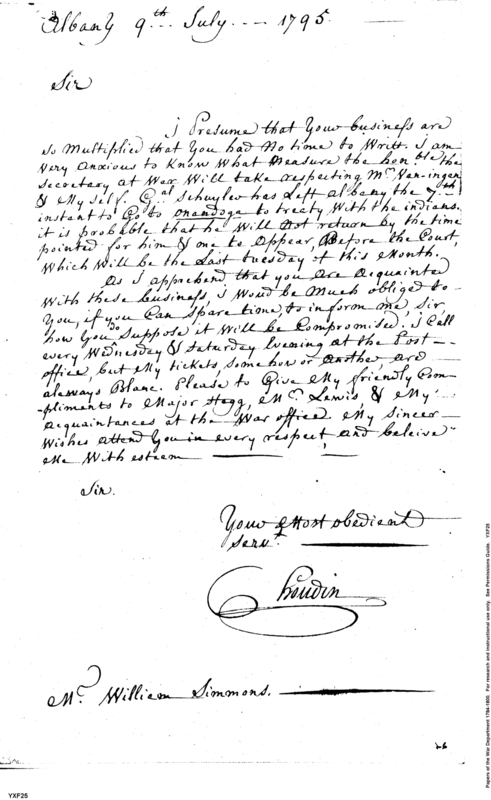 Albany 9th July 1795
Sir
I Presume that Your business are
so Multiplied that You had No time to Writt. I am
Very Anxious to Know What Measure the hon.ble the
Secretary at War Will take respecting Mr. Van-ingen
& My self. Gal. Schuyler has Left albany the 7th
instant to Go to onandoge to treety With the indians.
it is probable that he Will Not return by the time
pointed for him & me to Appear, Before the Court,
Which Will be the Last tuesday of this Month.
As I apprehend that you Are Acquainte
With these business, I Woud be Much obliged to
You, if you Can Spare time, to inform me, Sir,
how You do Suppose it Will be Compromised. I Call
every Wednesday & Saturday Evening at the Post
office, but My tickets, Somehow or another, are
aleways Blanc. Please to Give My friendly Com-
pliments to Major Hagg, Mr. Lewis, & My
Acquaintances at the War office. My Sincer
Wishes attend You in every respect, and beleive
Me With esteem
Sir.
Your Most obedient
Serv.t
Houdin
Mr. William Simmons.
YXF25
Papers of the War Department 1784-1800. For research and instructional use only. See Permissions Guide. YXF25